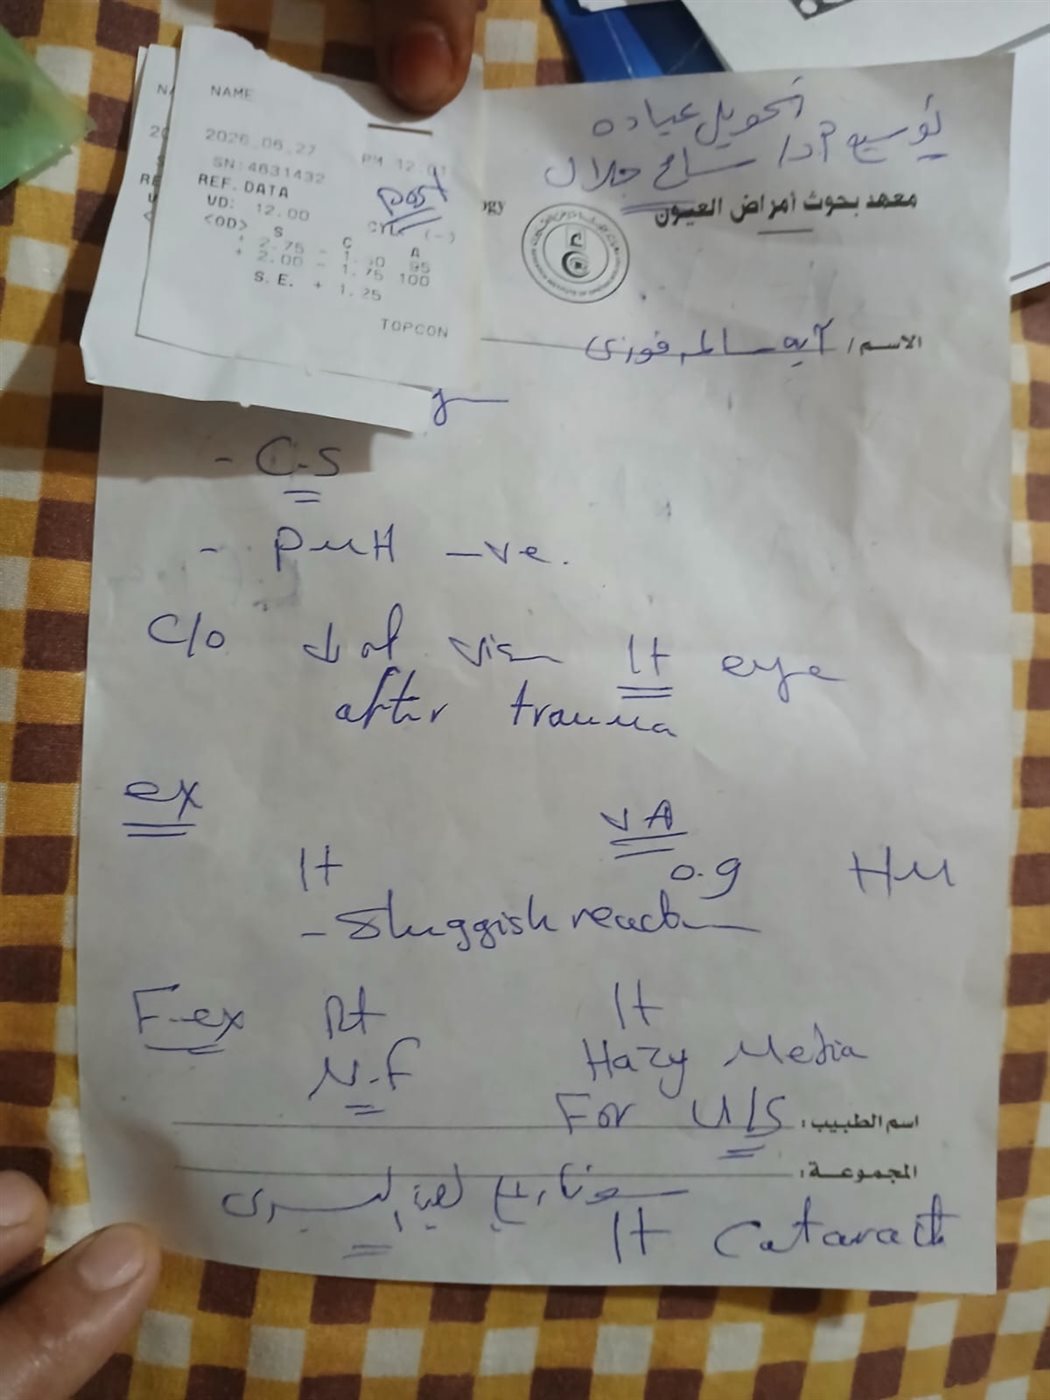 تحويل عياده
توسيع أ.د/ سامح جلال
معهد بحوث أمراض العيون
ogy
NAME
2026.06.27 PM 12.01
SN:4631432
post
REF. DATA
VD: 12.00 CYL (-)
<OD> S C A
+ 2.75 - 1.50 95
+ 2.00 - 1.75 100
S.E. + 1.25
TOPCON
الاسم / آيه سالم فوزى
- C.S
- PMH -ve.
C/o ↓ of vision lt eye
after trauma
ex
VA
lt 0.9 HM
- Sluggish reaction
F-ex Rt lt
N.F Hazy Media
For U/S
اسم الطبيب:
المجموعة:
سونار على العين اليسرى
lt Cataract